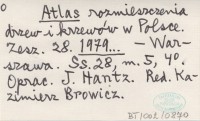 Atlas rozmieszczenia
drzew i krzewów w Polsce.
Zesz. 28. 1979... – War-
szawa. Ss. 28, m. 5, 4°.
Oprac. J. Hantz. Red. Ka-
zimierz Browicz.
BT/002/0870